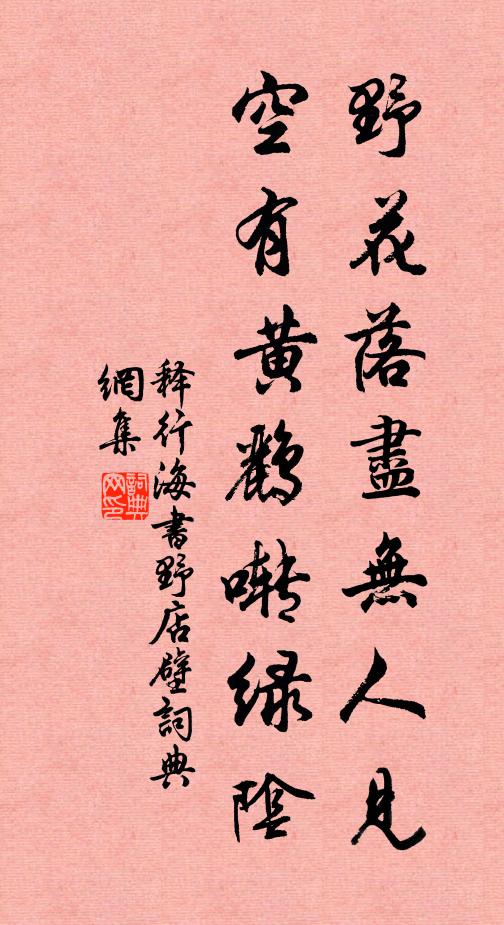 野花落盡無人見
空有黃鸝囀綠陰
释行海書野店壁詞典
網集
詞典
网印